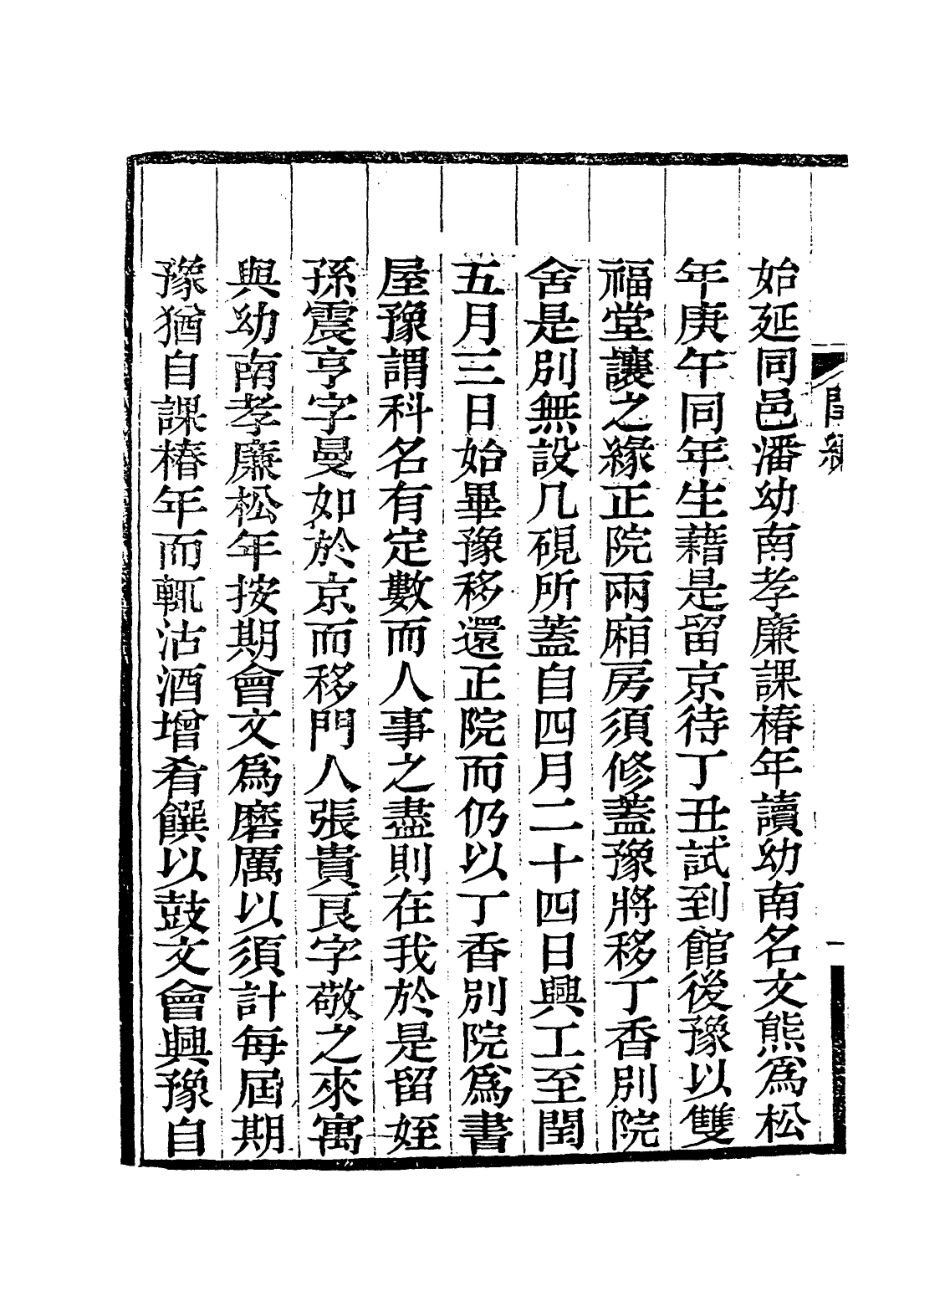 始延同邑潘幼南孝廉課椿年讀幼南名文熊為松
年庚午同年生藉是留京待丁丑試到館後豫以雙
福堂讓之緣正院兩廂房須修蓋豫將移丁香別院
舍是別無設几硯所蓋自四月二十四日興工至閏
五月三日始畢豫移還正院而仍以丁香別院為書
屋豫謂科名有定數而人事之盡則在我於是留姪
孫震亨字曼如於京而移門人張貴良字敬之來寓
與幼南孝廉松年按期會文為磨厲以須計每屆期
豫猶自課椿年而輒沽酒增肴饌以鼓文會興豫自
一